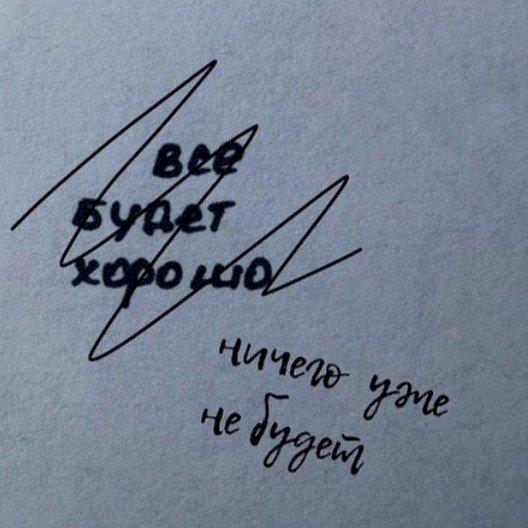 все
будет
хорошо
ничего уже
не будет